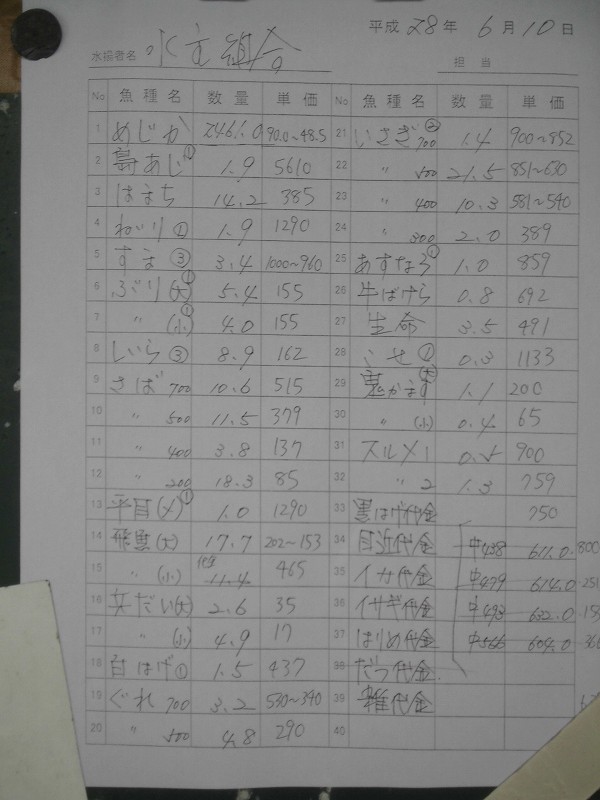 平成 28 年 6 月 10 日
水揚者名 水主組合 担当
No 魚種名 数量 単価
1 めじか 2461.0 90.0~48.5
2 島あじ① 1.9 5610
3 はまち 14.2 385
4 ねいり① 1.9 1290
5 すま③ 3.4 1000~960
6 ぶり(大)① 5.4 155
7 〃 (小)① 4.0 155
8 しいら③ 8.9 162
9 さば 700 10.6 515
10 〃 500 11.5 379
11 〃 400 3.8 137
12 〃 200 18.3 85
13 平目(メ)① 1.0 1290
14 飛魚(大) 17.7 202~153
15 〃 (小) 11.4 465
16 (大) 2.6 35
17 〃 (小) 4.9 17
18 白はげ① 1.5 437
19 ぐれ 700 3.2 530~340
20 〃 500 4.8 290
No 魚種名 数量 単価
21 いさぎ 700② 1.4 900~852
22 〃 500 21.5 851~630
23 〃 400 10.3 581~540
24 〃 300 2.0 389
25 あすなろ① 1.0 859
26 牛ばけら 0.8 692
27 生命 3.5 491
28 こせ① 0.3 1133
29 鬼かます(大) 1.1 200
30 〃 (小) 0.4 65
31 スルメ1 900
32 〃 2 1.3 759
33 黒はげ代金 750
34 目近代金 中438 611.0 800
35 イカ代金 中479 614.0 251
36 イサギ代金 中493 632.0
37 はりめ代金 中566 604.0
38 だつ代金
39 雑代金
40